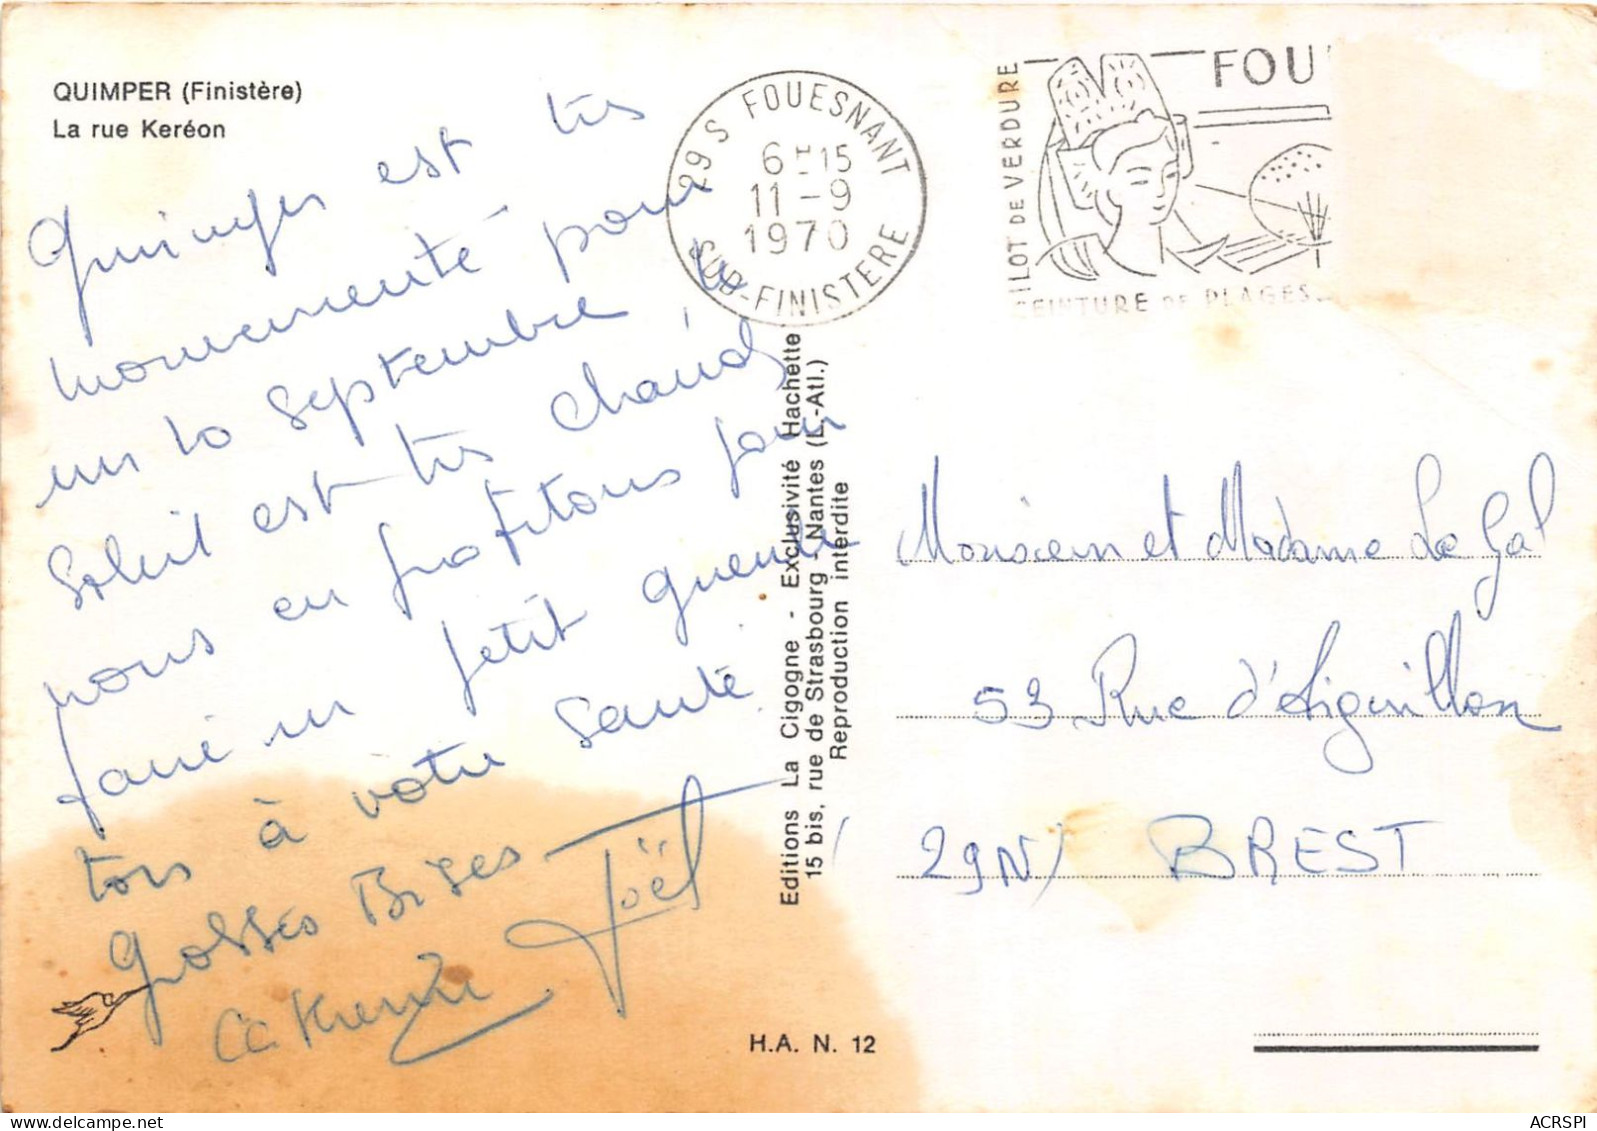 QUIMPER (Finistère)
La rue Keréon
Quimper est très
mouvementé pour
un 10 septembre, le
soleil est très chaud,
nous en profitons pour
faire un petit gueule
ton à votre santé.
Grosses Bises
Joël
29 S FOUESNANT
6 H 15
11 - 9
1970
SUD-FINISTERE
FOU
ILOT DE VERDURE
CEINTURE DE PLAGES
Editions La Cigogne - Exclusivité Hachette
15 bis, rue de Strasbourg - Nantes (L.-Atl.)
Reproduction interdite
Monsieur et Madame Le Gal
53 Rue d'Aiguillon
29N/ BREST
H.A. N. 12
ACRSPI